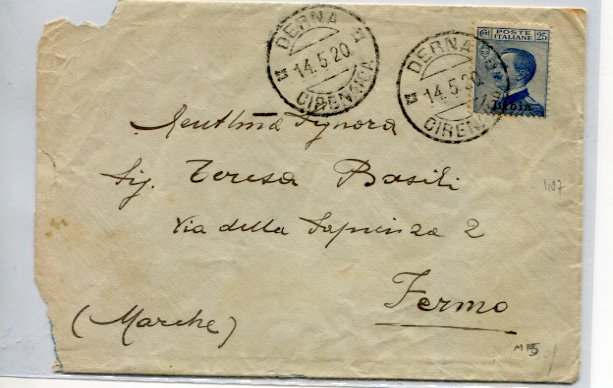 POSTE
ITALIANE
25
Libia
DERNA
14.5.20
CIRENAICA
DERNA
14.5.20
CIRENAICA
Gentilma Signora
Sig. Teresa Basili
Via della Sapienza 2
Fermo
(Marche)